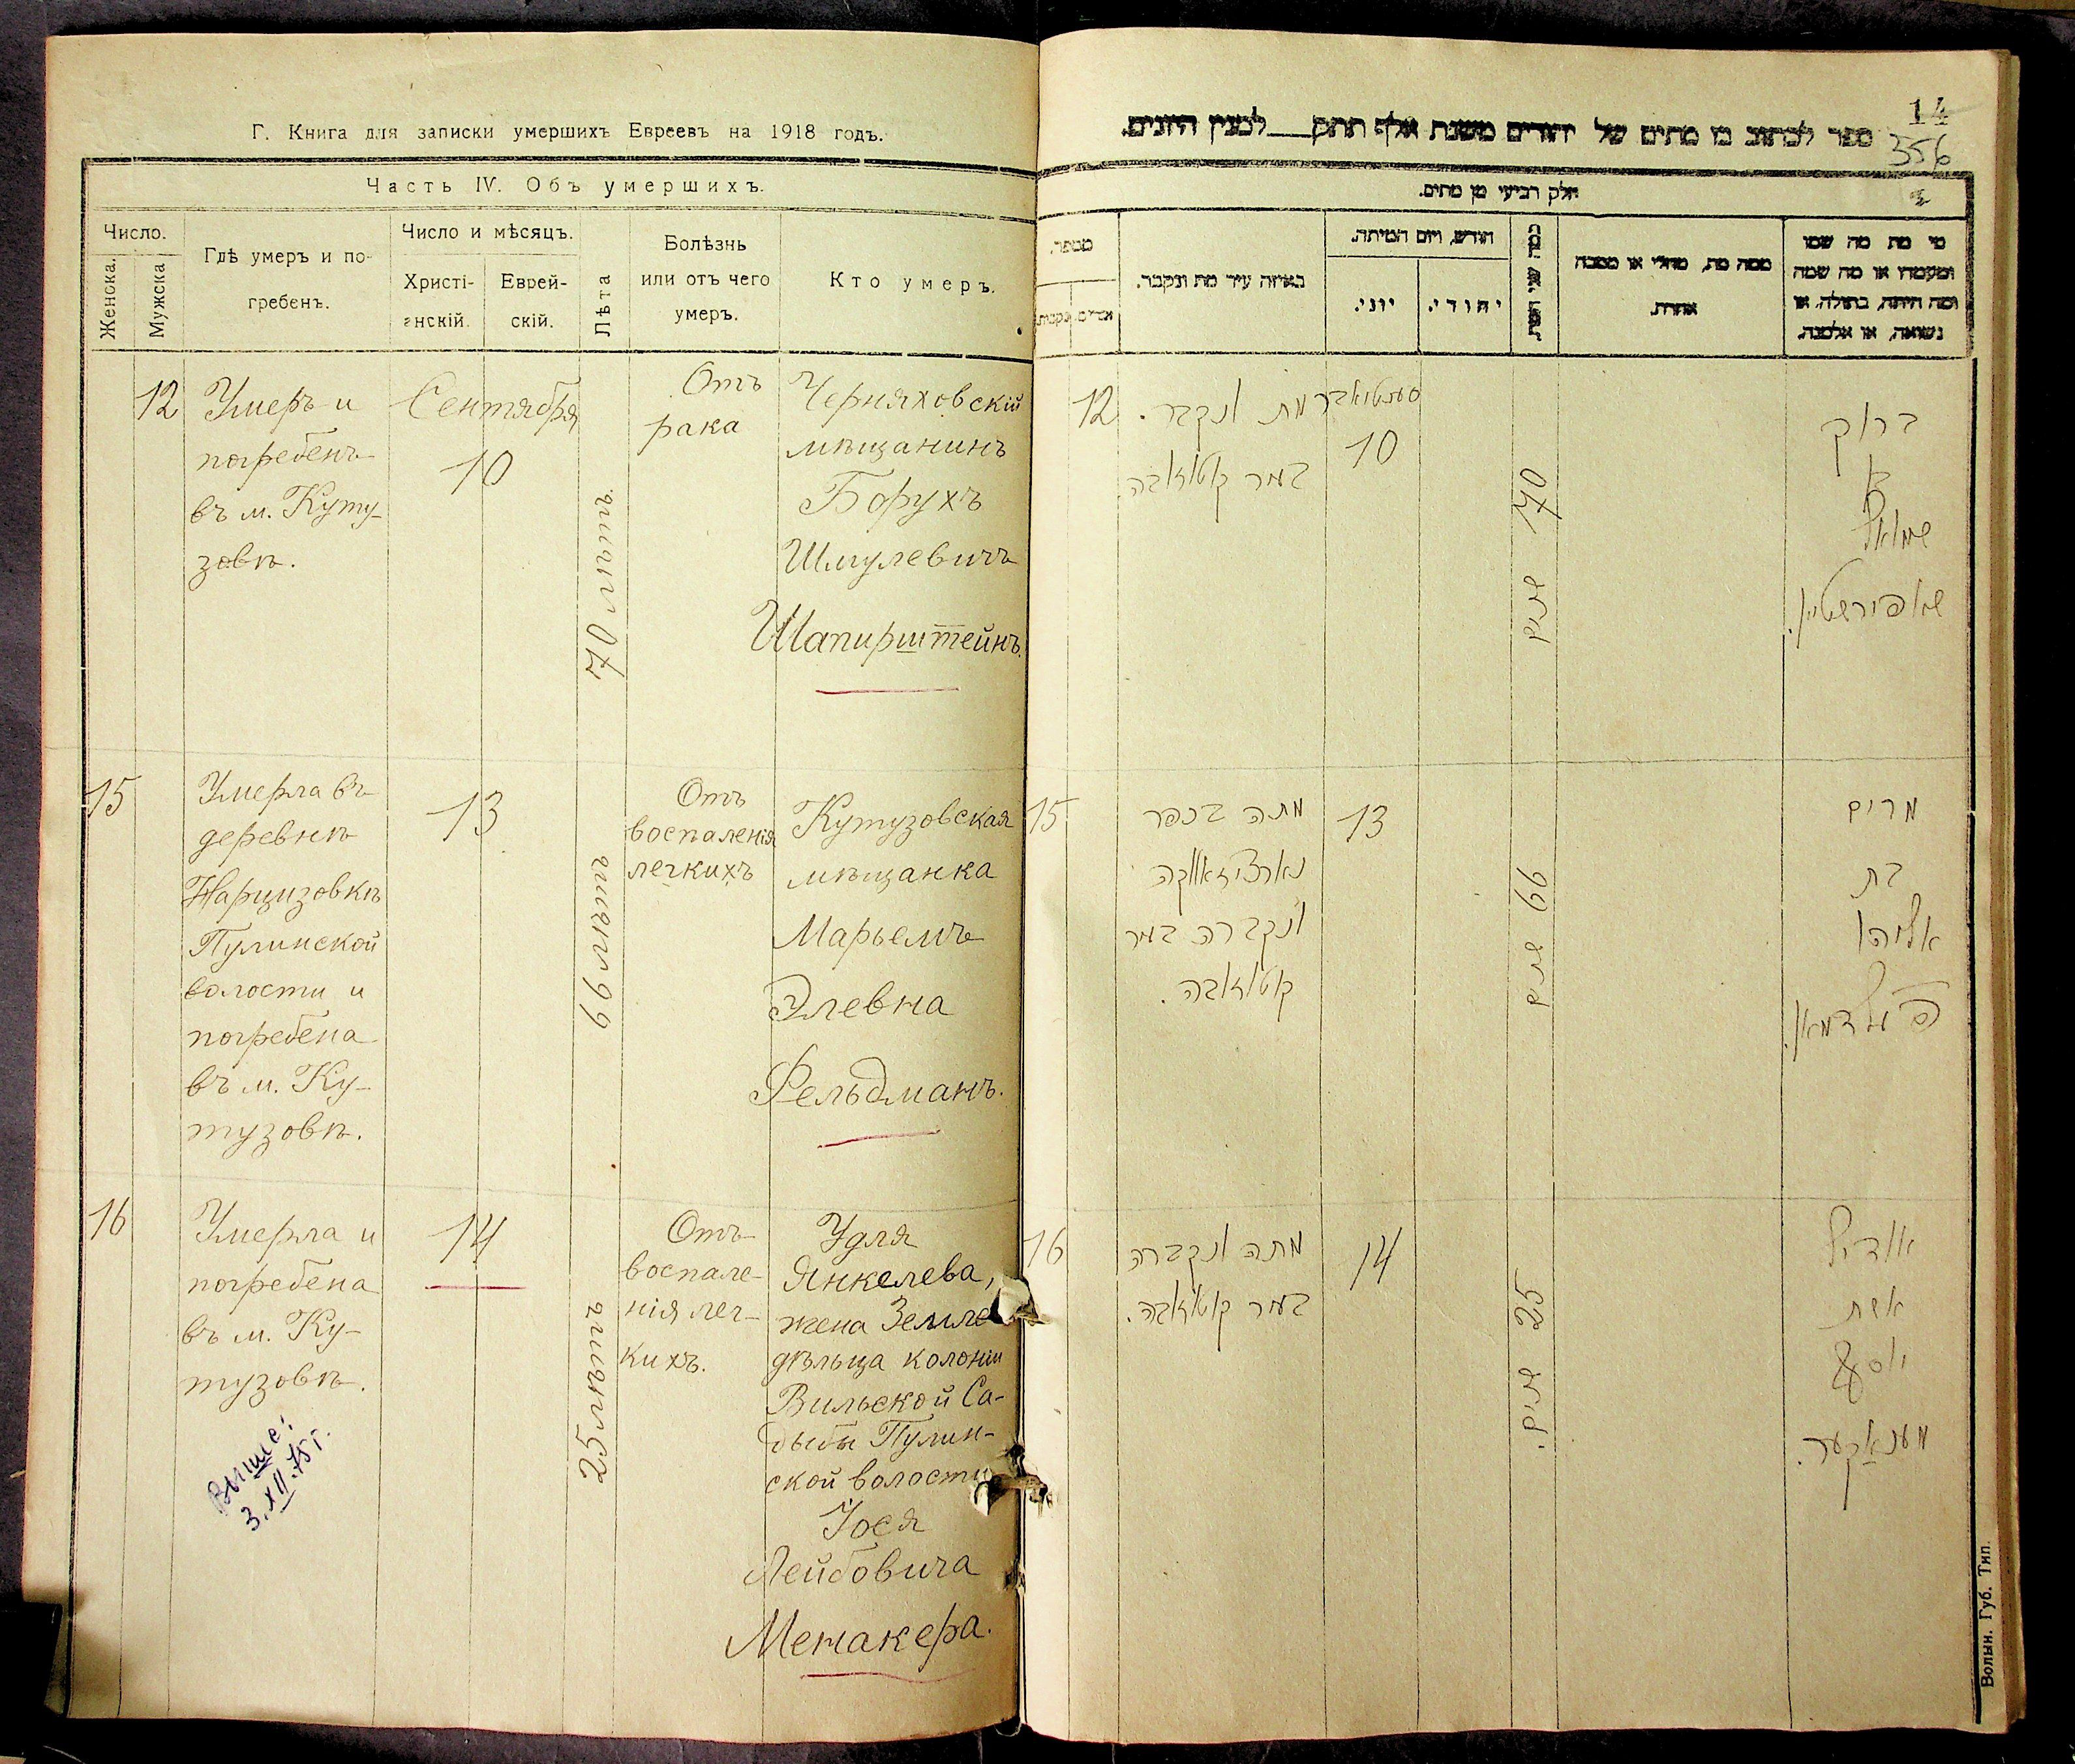 Г. Книга для записки умершихъ Евреевъ на 1918 годъ.
Часть IV. Объ умершихъ.
Число.
Женска.
Мужска
Гдѣ умеръ и по-
гребенъ.
Число и мѣсяцъ.
Христі-
анскій.
Еврей-
скій.
Лѣта
Болѣзнь
или отъ чего
умеръ.
Кто умеръ.
12
Умеръ и
погребенъ
въ м. Куту-
зовѣ.
Сентября
10
70 лѣтъ.
Отъ
рака
Черняховскій
мѣщанинъ
Борухъ
Шмулевичъ
Шапирштейнъ.
15
Умерла въ
деревнѣ
Нарцизовкѣ
Пулинской
волости и
погребена
въ м. Ку-
тузовѣ.
13
66 лѣтъ
Отъ
воспаленія
легкихъ
Кутузовская
мѣщанка
Марьемъ
Элевна
Фельдманъ.
16
Умерла и
погребена
въ м. Ку-
тузовѣ.
14
25 лѣтъ
Отъ
воспале-
нія лег-
кихъ.
Удля
Янкелева,
жена Земле
дѣльца колоніи
Вильской Са-
дыбы Пулин-
ской волости
Іося
Лейбовича
Менакера.
Выше:
3.XII.75 г.
14
356
ספר לכתוב בו מתים של יהודים משנת אלף תתק לכמנין היונים.
חלק רביעי מן מתים.
מספר.
זכרים
נקבות
באיזה עיר מת ונקבר.
חודש, ויום המיתה.
יוני.
יהודי.
כמה שני המת.
ממה מת, מחלי או מסבה
אחרת.
מי מת מה שמו
ומעמדו או מה שמה
ומה היתה, בתולה, או
נשואה, או אלמנה.
12
מת ונקבר.
במר קוטוזאבה.
סענטיאבר
10
70 שנים
ברוך
ב
שמואל
שאפירשטיין.
15
מתה בכפר
נארציזאווקה
ונקברה במר
קוטוזאבה.
13
66 שנים
מרים
בת
אליהו
פעלדמאן.
16
מתה ונקברה
במר קוטוזאבה.
14
25 שנים.
אודיל
אשת
יוסף
מענאקער.
Волын. Губ. Тип.